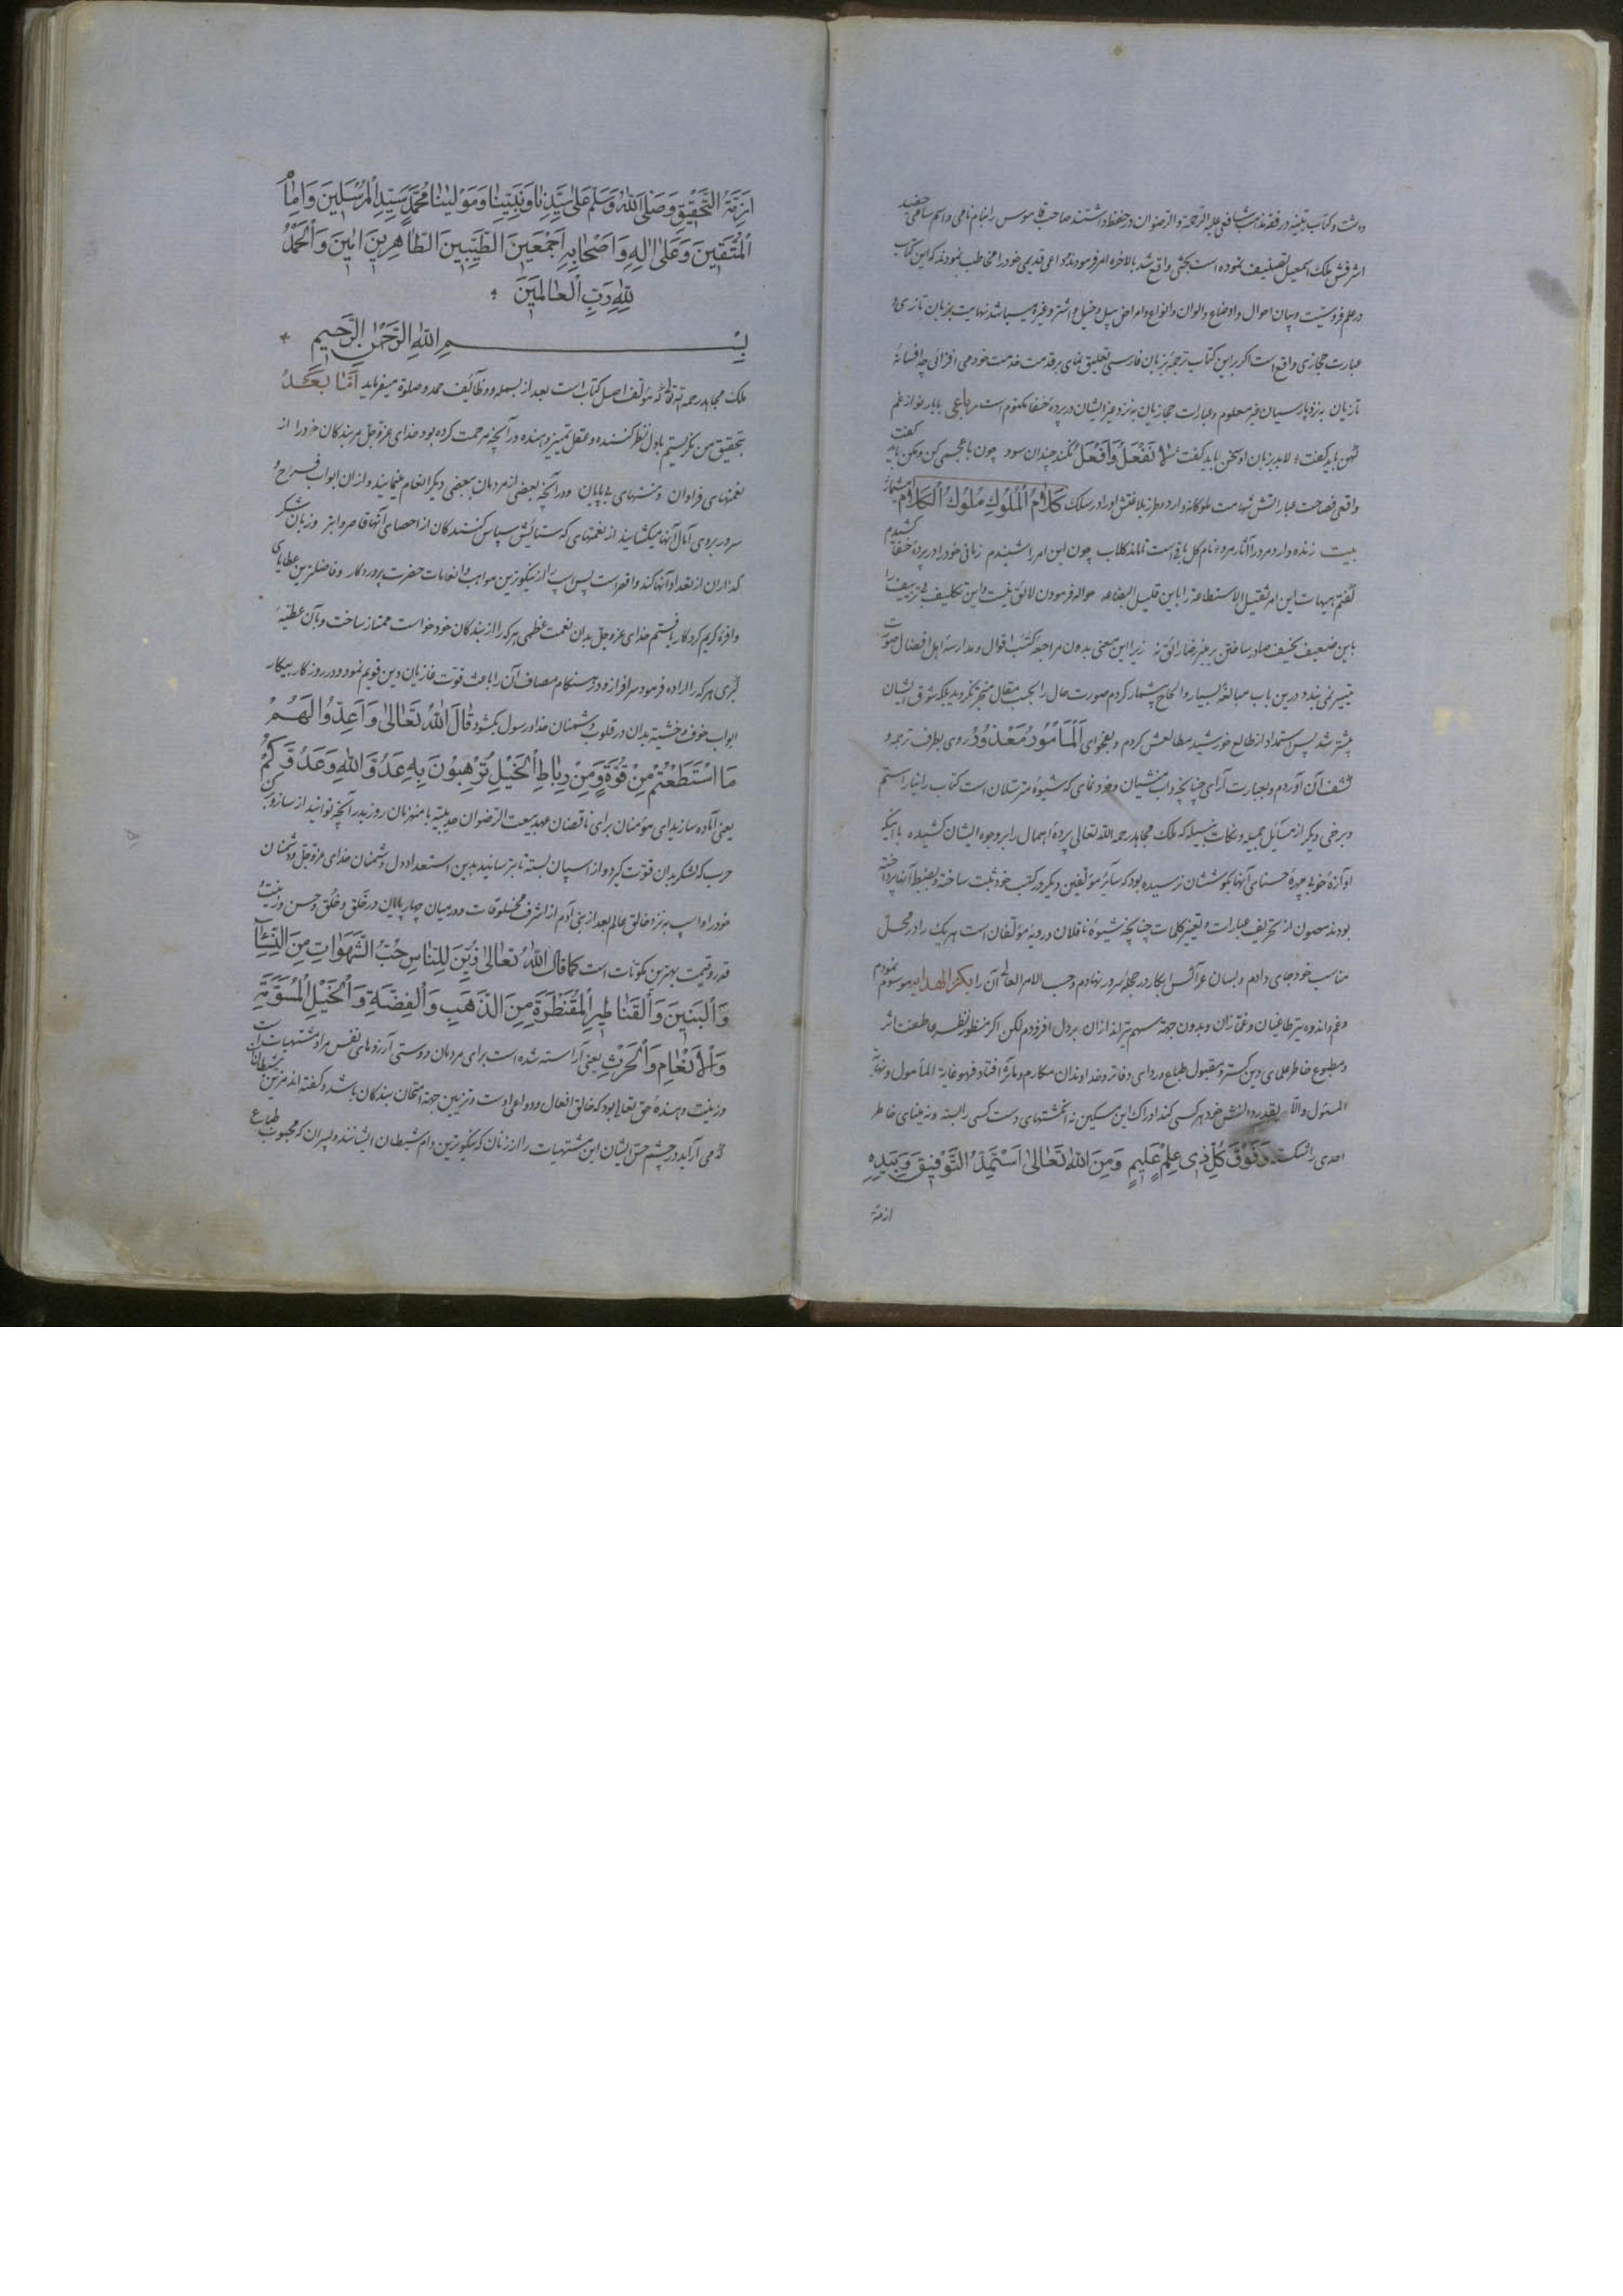 داشت و کتاب تنبیه در فقه مذهب شافعی علیه الرحمة و الرضوان در حفظ داشتند صاحب قاموس را بنام نامی و اسم سامی حفید
اشرفش ملک اسمعیل تصنیف نموده است بحثی واقع شد بالاخره امر فرمودند و داعی قدیمی خود را مخاطب نمودند که این کتاب
در علم فروسیت و بیان احوال و اوضاع و الوان و انواع و امراض پیل و خیل و اشتر و غیره میباشد نهایت بزبان تازی و
عبارت حجازی واقع است اگر بر این کتاب ترجمه بزبان فارسی تعلیق نمای بر قدمت خدمت خود می افزائی چه افسانهٔ
تازیان به نزد پارسیان غیر معلوم و عبارات حجازیان به نزد غیر ایشان در پردهٔ خفا مکتوم است رباعی با یار نو از غم
کهن باید گفت لابد بزبان او سخن باید گفت لا تَفْعَلْ وَافْعَلْ نکند چندان سود چون با عجمی کن و مکن باید گفت
واقعی فصاحت عباراتش شهامت ملوکانه دارد و طرز بلاغتش او را در سلک كَلَامُ الْمُلُوكِ مُلُوكُ الْكَلَامِ میشمارد
بیت زنده دارد مرد را آثار مرد نام گل باقی است تا ماند گلاب چون این امر را شنیدم زبانی خود را در پردهٔ خفا کشیدم
گفتم هیهات این امر ثقیل الاستطاعة را باین قلیل البضاعه حواله فرمودن لائق نیست و این تکلیف را
باین ضعیف نحیف صادر ساختن بر هنر رائق نه زیرا این معنی بدون مراجعهٔ کتب اقوال و مدارسهٔ اهل افضال صورت
تیسر نمی بندد درین باب مبالغهٔ بسیار و الحاح بیشمار کردم صورت حال را بحسب مقال منجر نگردید بلکه شوق ایشان
بیشتر شد پس استمداد از طالع خورشید مطالعش کردم و بفحوای اَلْمَأْمُورُ مَعْذُورٌ روی بطرف ترجمه و
کشف آن آوردم و بعبارت آرای چنانچه داب منشیان و خود نمای که شیوهٔ مترسلان است کتاب را نیاراستم
و برخی دیگر از مسائل و نکات که ملک مجاهد رحمه الله تعالی پردهٔ اهمال را بر وجوه ایشان کشیده یا اینکه
آوازهٔ خوبی چهرهٔ حسنای آنها بگوششان نرسیده بود که سائر مؤلفین دیگر در کتب خود ثبت ساخته و بضبط آنها پرداخته
بودند مصون از تحریف عبارات و تغییر کلمات چنانچه شیوهٔ ناقلان و رویهٔ مؤلفان است هر یک را در محل
مناسب خود جای دادم و بسان عرائس ابکار در حجلهٔ سرور نهادم و حسب الامر العالی آن را ببکر الهدایه موسوم نمودم
و غم و اندوه بر طاغیان و غمازان و بدون جهة سهم بر ایذان بر دل افزودم لکن اگر منظور نظر عاطفت اثر
و مطبوع خاطر علمای دین گستر و مقبول طباع وردای دفاتر و خداوندان مکارم و مآثر افتاد فهو غایة المأمول و نهایة
المسئول و الا بقدر دانش خود هر کسی کند ادراک این مسکین نه انگشتهای دست کسی را بسته و نه مینای خاطر
احدی را شکسته وَفَوْقَ كُلِّ ذِى عِلْمٍ عَلِيمٍ وَمِنَ اللهِ تَعَالىٰ اَسْتَمِدُّ التَّوْفِيقَ وَبِيَدِهِ
ازمّة
اَزِمَّةُ التَّحْقِيقِ وَصَلَّى اللهُ وَسَلَّمَ عَلىٰ سَيِّدِنَا وَنَبِيِّنَا وَمَوْلينَا مُحَمَّدٍ سَيِّدِ الْمُرْسَلِينَ وَاِمَامِ
الْمُتَّقِينَ وَعَلىٰ اٰلِهِ وَاَصْحَابِهِ اَجْمَعِينَ الطَّيِّبِينَ الطَّاهِرِينَ اٰمِينَ وَالْحَمْدُ
لِلّٰهِ رَبِّ الْعَالَمِينَ
بِسْمِ اللهِ الرَّحْمٰنِ الرَّحِيمِ
ملک مجاهد رحمه الله تعالی که مؤلف اصل کتاب است بعد از بسمله و وظائف حمد و صلوة میفرماید اَمَّا بَعْدُ
بتحقیق من نگریستم با دل نظر کننده و عقل تمییز دهنده در آنچه مرحمت کرده بود خدای عزوجل مر بندگان خود را از
نعمتهای فراوان و منتهای بی پایان و در آنچه بعضی از مردمان ببعضی دیگر انعام مینمایند و ازان ابواب فرح و
سرور بروی آمال آنها میگشایند از نعمتهای که ستایش سپاس کنندگان از احصای آنها قاصر و ابتر و زبان شکر
گذاران از تعداد آنها کند و اقصر است پس اسپ را از نیکوترین مواهب و انعامات حضرت پروردگار و فاضلترین عطایای
وافرهٔ کریم کردگار یافتم خدای عزوجل بدان نعمت عظمی هر که را از بندگان خود خواست ممتاز ساخت و بآن عطیهٔ
کبری هر که را اراده فرمود سرافراز و در هنگام مصاف آن را باعث قوت غازیان دین قویم نمود و در روزگار پیکار
ابواب خوف و خشیة بدان در قلوب دشمنان خدا و رسول بگشود قَالَ اللهُ تَعَالىٰ وَاَعِدُّوا لَهُمْ
مَا اسْتَطَعْتُمْ مِنْ قُوَّةٍ وَمِنْ رِبَاطِ الْخَيْلِ تُرْهِبُونَ بِهِ عَدُوَّ اللهِ وَعَدُوَّكُمْ
یعنی آماده سازید ای مؤمنان برای ناقضان عهد بیعت الرضوان حدیبیه یا منهزمان روز بدر آنچه توانید از ساز و برگ
حرب که لشکر بدان قوت گیرد و از اسپان بسته تا بترسانید بدین استعداد دل دشمنان خدای عزوجل و دشمنان
خود را و اسپ به نزد خالق عالم بعد از بنی آدم از اشرف مخلوقات و در میان چارپایان در خَلق و خُلق و حسن و زینت و
قدر و قیمت بهترین مکونات است كَمَا قَالَ اللهُ تَعَالىٰ زُيِّنَ لِلنَّاسِ حُبُّ الشَّهَوَاتِ مِنَ النِّسَاءِ
وَالْبَنِينَ وَالْقَنَاطِيرِ الْمُقَنْطَرَةِ مِنَ الذَّهَبِ وَالْفِضَّةِ وَالْخَيْلِ الْمُسَوَّمَةِ
وَالْاَنْعَامِ وَالْحَرْثِ یعنی آراسته شده است برای مردمان دوستی آرزوهای نفس مراد مشتهیات است
و زینت دهندهٔ حق تعالی بود که خالق افعال و دواعی اوست و تزیین جهة امتحان بندگان باشد و گفته اند مزین شیطانست
که می آراید در چشم حس ایشان این مشتهیات را از زنان که نیکوترین دام شیطان ایشانند و پسران که محبوب طباع